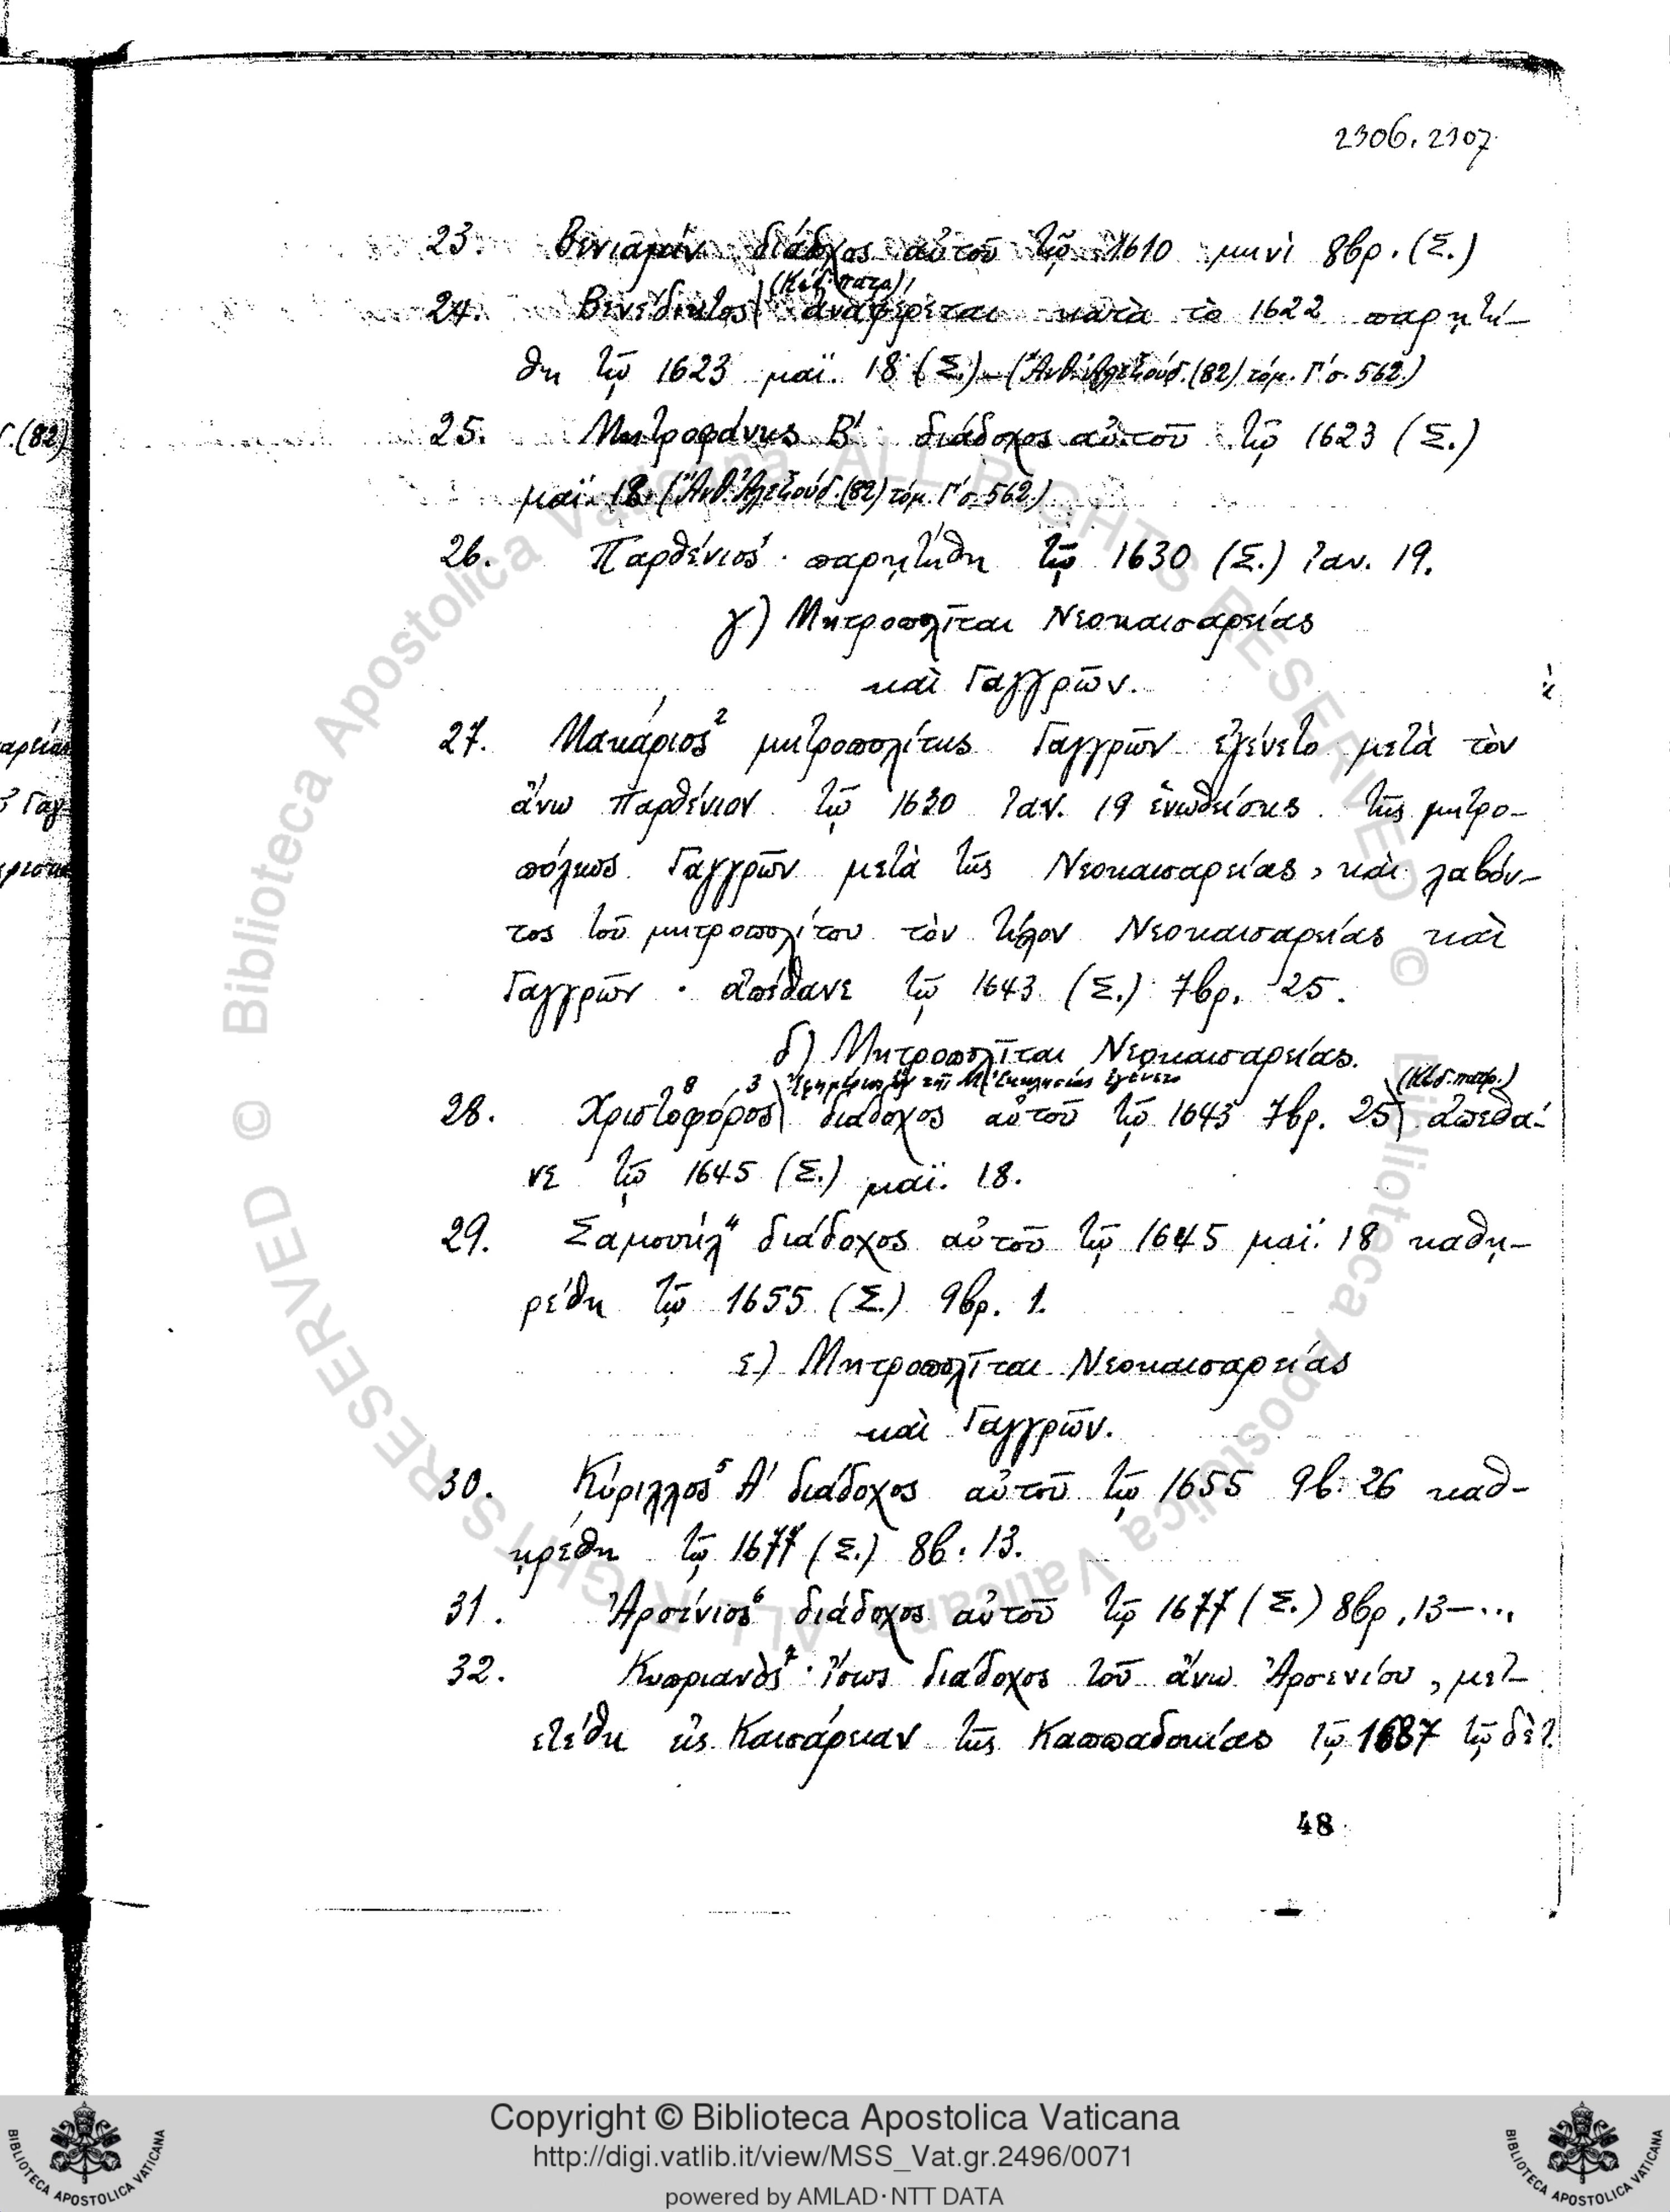 2306. 2307
23. Βενιαμὶν διάδοχος αὐτοῦ τῷ 1610 μηνὶ 8βρ. (Σ.)
24. Βενέδικτος (Κώδ. πατρ.) ἀναφέρεται κατὰ τὸ 1622 παρῃτή-
θη τῷ 1623 μαϊ. 18 (Σ.) – (Ἀνθ. Ἀλεξούδ. (82) τόμ. Γ′ σ. 562.)
25. Μητροφάνης Β′ διάδοχος αὐτοῦ τῷ 1623 (Σ.)
μαϊ. 18 (Ἀνθ. Ἀλεξούδ. (82) τόμ. Γ′ σ. 562.)
26. Παρθένιος¹ · παρῃτήθη τῷ 1630 (Σ.) Ἰαν. 19.
γ) Μητροπολῖται Νεοκαισαρείας
καὶ Γαγγρῶν.
27. Μακάριος² μητροπολίτης Γαγγρῶν ἐγένετο μετὰ τὸν
ἄνω Παρθένιον τῷ 1630 Ἰαν. 19 ἑνωθείσης τῆς μητρο-
πόλεως Γαγγρῶν μετὰ τῆς Νεοκαισαρείας, καὶ λαβόν-
τος τοῦ μητροπολίτου τὸν τίτλον Νεοκαισαρείας καὶ
Γαγγρῶν · ἀπέθανε τῷ 1643 (Σ.) 7βρ. 25.
δ) Μητροπολῖται Νεοκαισαρείας.
τῆς Μ. Ἐκκλησίας ἐγένετο (Κώδ. πατρ.)
28. Χριστοφόρος⁸ ³ διάδοχος αὐτοῦ τῷ 1643 7βρ. 25 ἀπέθα-
νε τῷ 1645 (Σ.) μαϊ. 18.
29. Σαμουὴλ⁴ διάδοχος αὐτοῦ τῷ 1645 μαϊ. 18 καθῃ-
ρέθη τῷ 1655 (Σ.) 9βρ. 1.
ε) Μητροπολῖται Νεοκαισαρείας
καὶ Γαγγρῶν.
30. Κύριλλος⁵ Α′ διάδοχος αὐτοῦ τῷ 1655 9β. 26 καθ-
ῃρέθη τῷ 1677 (Σ.) 8β. 13.
31. Ἀρσένιος⁶ διάδοχος αὐτοῦ τῷ 1677 (Σ.) 8βρ. 13–...
32. Κυπριανὸς⁷ · ἴσως διάδοχος τοῦ ἄνω Ἀρσενίου, μετ-
ετέθη εἰς Καισάρειαν τῆς Καππαδοκίας τῷ 1687 τῷ δὲ
48
© Biblioteca Apostolica Vaticana ALL RIGHTS RESERVED © Biblioteca Apostolica Vaticana ALL RIGHTS RESERVED
Copyright © Biblioteca Apostolica Vaticana
http://digi.vatlib.it/view/MSS_Vat.gr.2496/0071
powered by AMLAD·NTT DATA
BIBLIOTECA APOSTOLICA VATICANA
BIBLIOTECA APOSTOLICA VATICANA